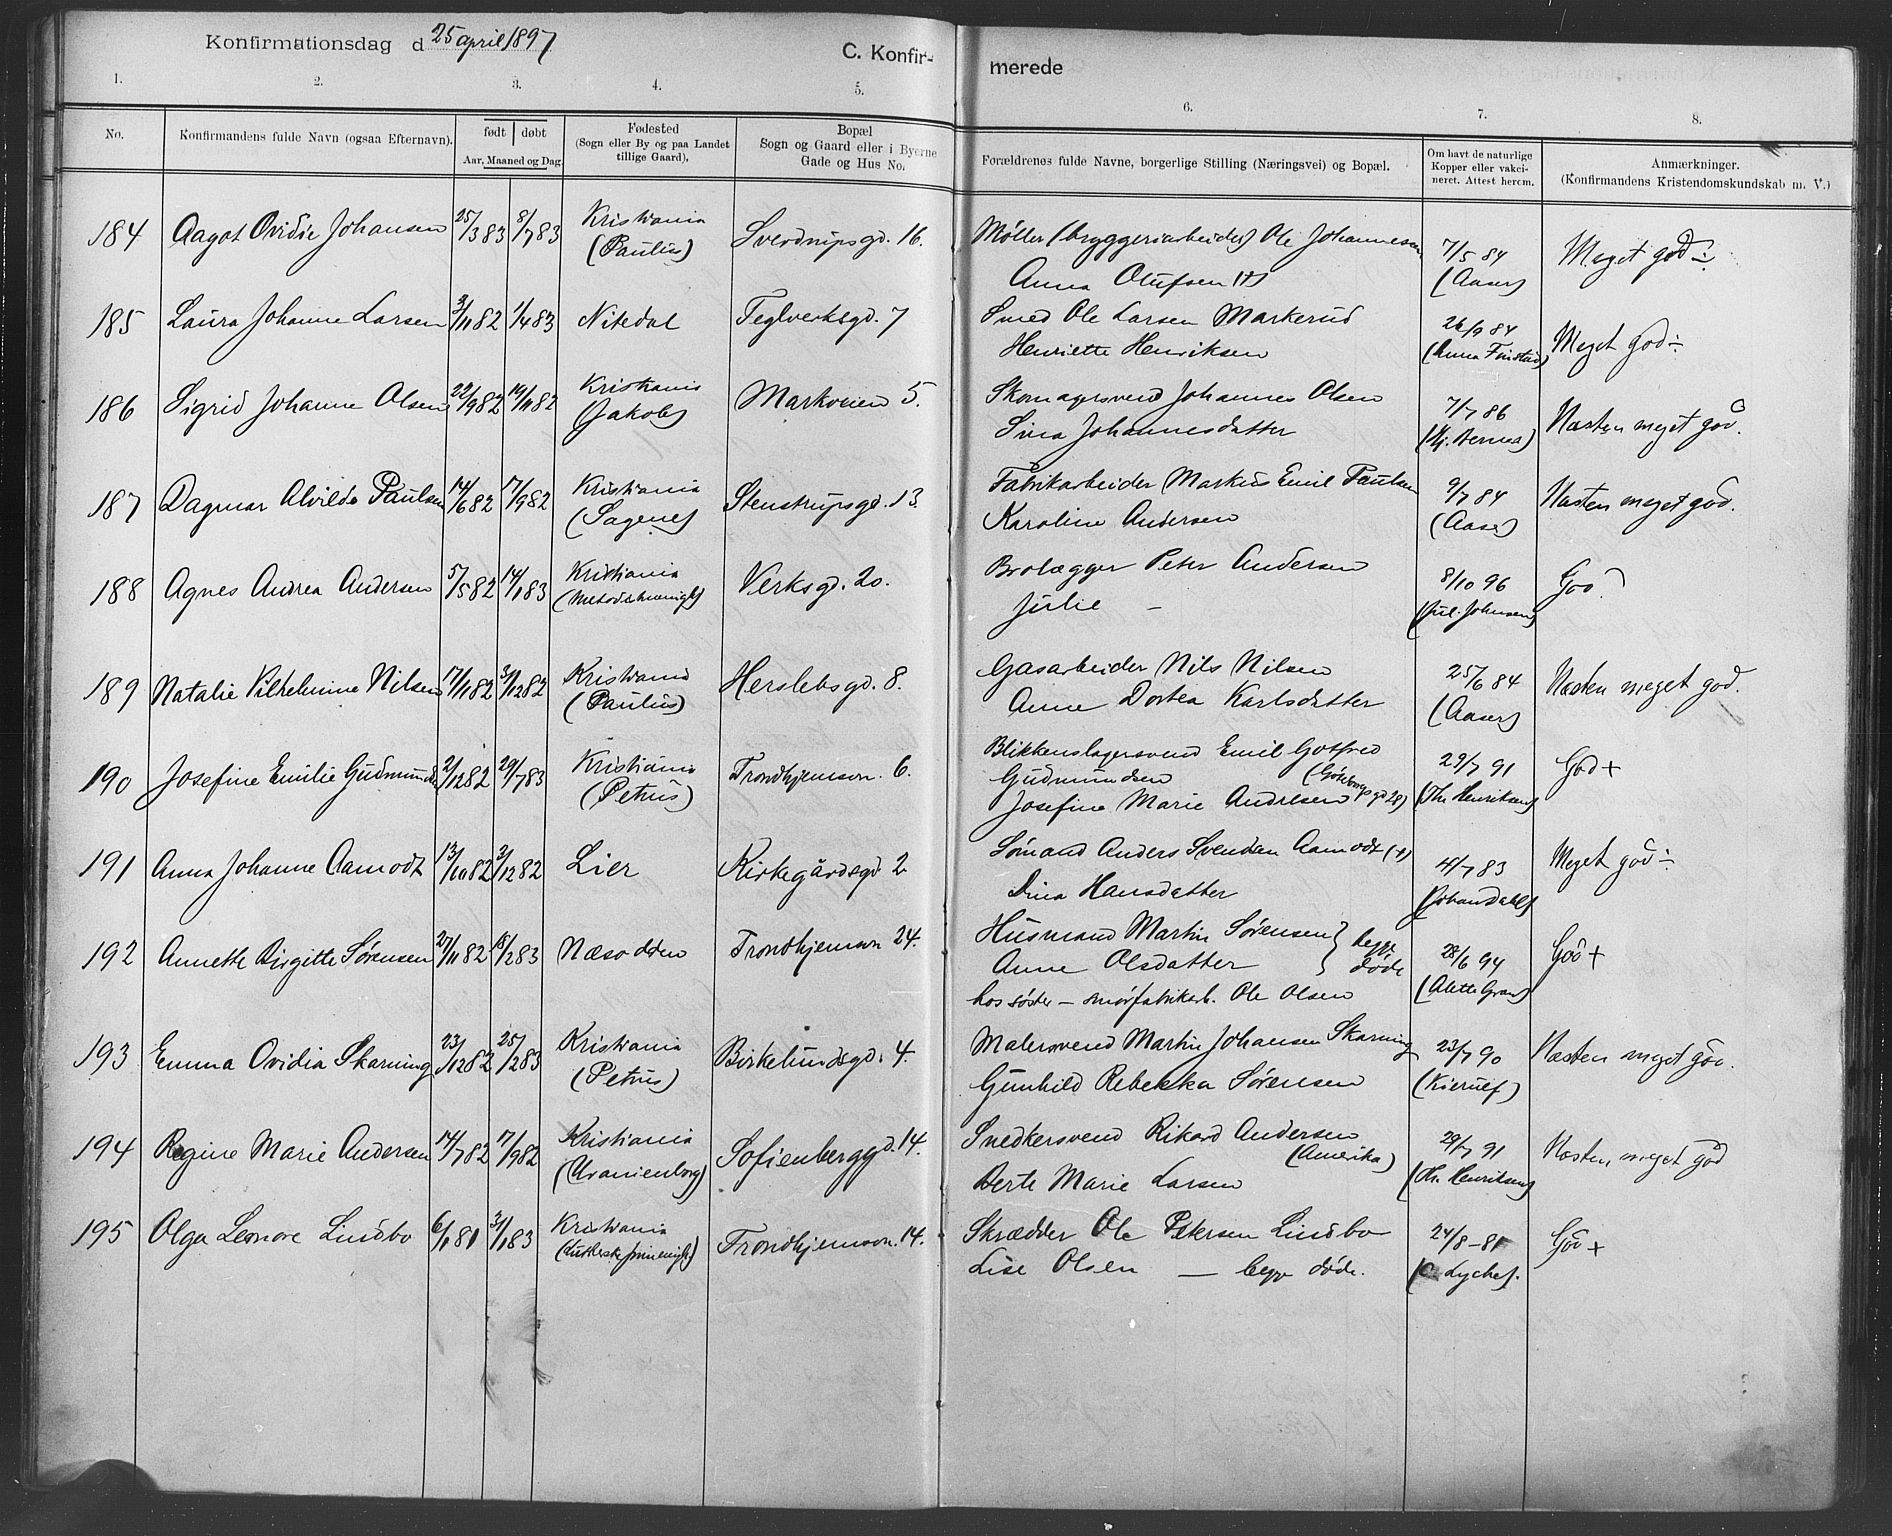 Konfirmationsdag d 25 april 1897
C. Konfir-
merede
1. 2. 3. 4. 5. 6. 7. 8.
No.
Konfirmandens fulde Navn (ogsaa Efternavn).
født døbt
Aar, Maaned og Dag.
Fødested
(Sogn eller By og paa Landet
tillige Gaard).
Bopæl
Sogn og Gaard eller i Byerne
Gade og Hus No.
Forældrenes fulde Navne, borgerlige Stilling (Næringsvei) og Bopæl.
Om havt de naturlige
Kopper eller vakci-
neret. Attest herom.
Anmærkninger.
(Konfirmandens Kristendomskundskab m. V.)
184 Aagot Ovidie Johansen 25/3 83 8/7 83 Kristiania Sverdrupsgd. 16. Møller (bryggeriarbeider) Ole Johannesen 7/5 84 Meget god ÷
(Paulus) Anna Olufsen (†) (Aaser)
185 Laura Johanne Larsen 3/11 82 1/4 83 Nitedal Teglverksgd. 7 Smed Ole Larsen Markerud 26/9 84 Meget god ÷
Henriette Henriksen (Anna Finstad)
186 Sigrid Johanne Olsen 22/9 82 19/11 82 Kristiania Markveien 5. Skomagersvend Johannes Olsen 7/7 86 Næsten meget god.
(Jakob) Sina Johannesdatter
187 Dagmar Alvilde Paulsen 14/6 82 17/9 82 Kristiania Stenstrupsgd. 13. Fabrikarbeider Markus Emil Paulsen 9/7 84 Næsten meget god.
(Sagene) Karoline Andersen (Aaser)
188 Agnes Andrea Andersen 5/5 82 14/1 83 Kristiania Verksgd. 20. Brolægger Peter Andersen 8/10 96 God
(Metodistmenigh) Julie — (Jul. Johnsen)
189 Natalie Vilhelmine Nilsen 17/11 82 3/12 82 Kristiania Herslebsgd. 8. Gasarbeider Nils Nilsen 25/6 84 Næsten meget god.
(Paulus) Anne Dortea Karlsdatter (Aaser)
190 Josefine Emilie Gudmunds 2/12 82 29/7 83 Kristiania Trondhjemsvn. 6. Blikkenslagersvend Emil Gotfred 29/7 91 God +
(Petrus) Gudmundsen (Gøteborgsgd 28) (Thr Henriksen)
Josefine Marie Andresen
191 Anna Johanne Aamodt 13/10 82 3/12 82 Lier Kirkegårdsgd 2 Sømand Anders Svendsen Aamodt (†) 4/7 83 Meget god ÷
Dina Hansdatter (Johan Dahl)
192 Annette Birgitte Sørensen 27/11 82 18/2 83 Næsodden Trondhjemsvn 24. Husmand Martin Sørensen } begge 28/6 94 God +
Anne Olsdatter } døde (Alette Gran)
hos søster — smørfabrikarb. Ole Olsen
193 Emma Ovidia Skarning 23/12 82 25/2 83 Kristiania Birkelundsgd. 4. Malersvend Martin Johansen Skarning 23/7 90 Næsten meget god.
(Petrus) Gunhild Rebekka Sørensen (Kierulf)
194 Regine Marie Andersen 14/7 82 17/9 82 Kristiania Sofienberggd. 14. Snedkersvend Rikard Andersen 29/7 91 Næsten meget god
(Uranienborg) (Amerika) (Th. Henriksen)
Berte Marie Larsen
195 Olga Leonore Lindbo 6/1 81 3/1 83 Kristiania Trondhjemsvn. 14. Skrædder Ole Petersen Lindbo 24/8 – 81 God +
(Lutherske frimenigh) Lise Olsen — begge døde. (C. Lyche).